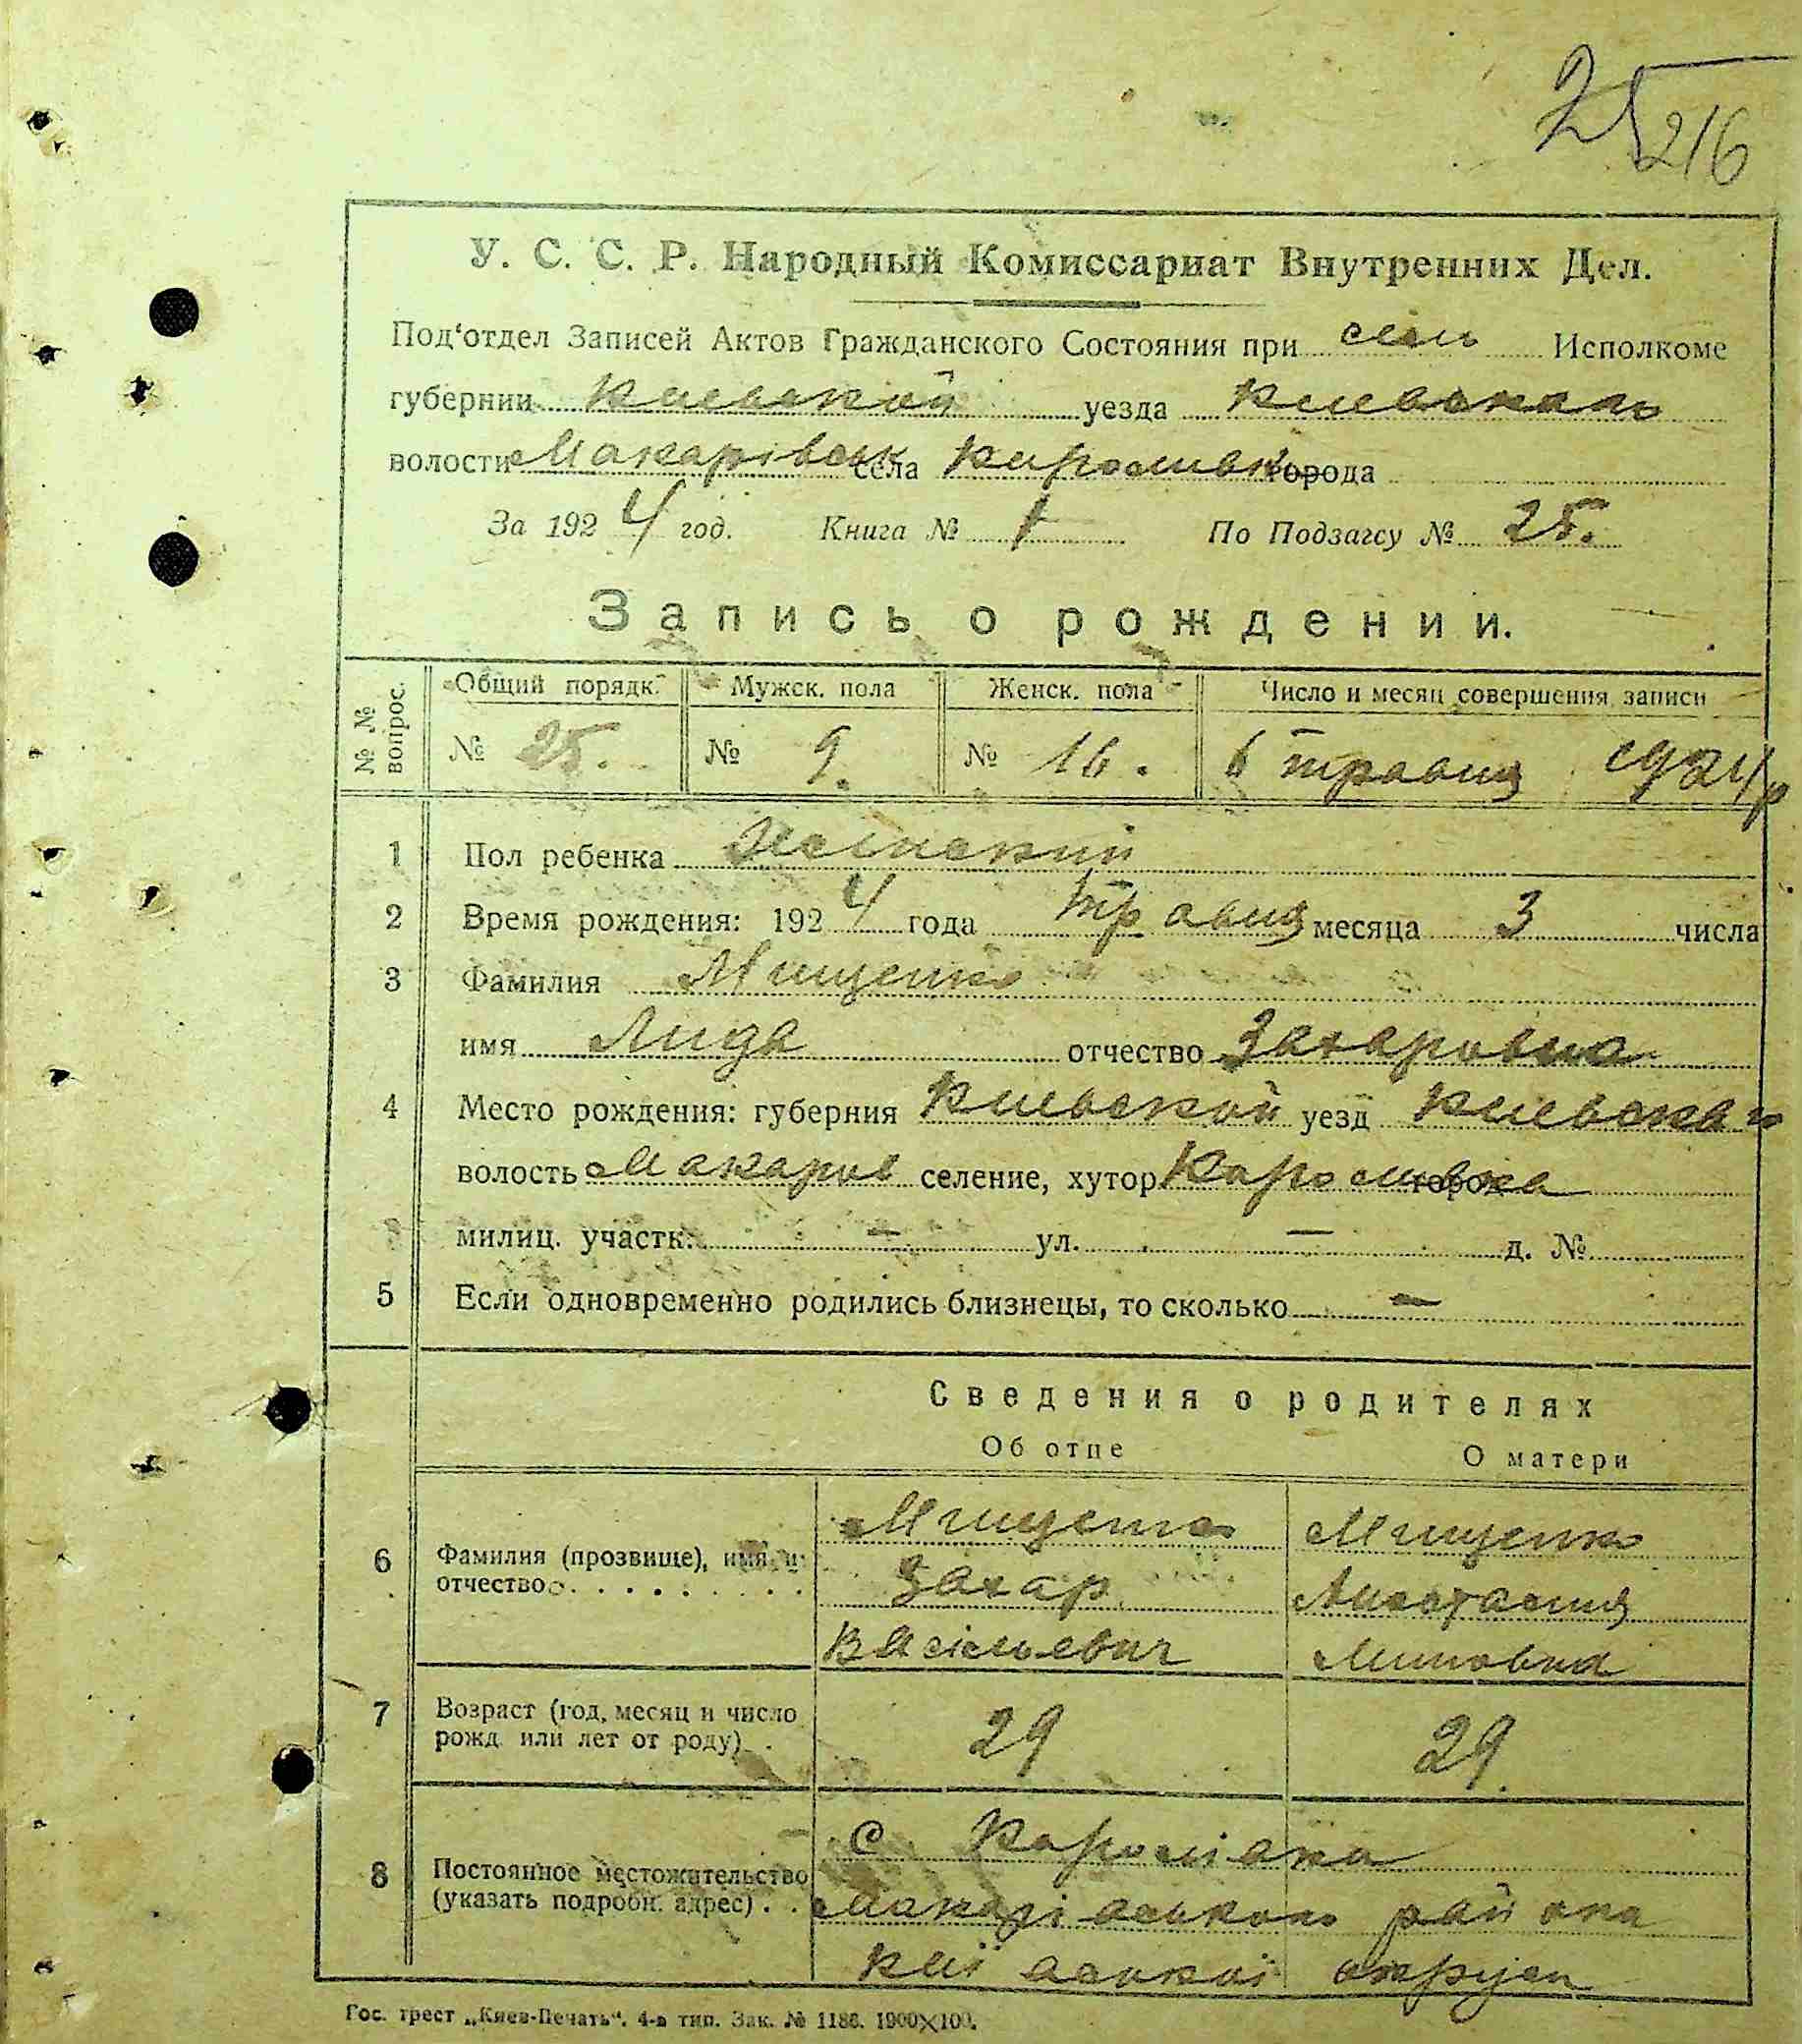 25
216
У. С. С. Р. Народный Комиссариат Внутренних Дел.
Под‘отдел Записей Актов Гражданского Состояния при сель Исполкоме
губернии Киевской уезда Киевского
волости Макарівськ села Королівк города
За 1924 год. Книга № 1 По Подзагсу № 25.
Запись о рождении.
№ № вопрос. Общий порядк. Мужск. пола Женск. пола Число и месяц совершения записи
№ 25. № 9. № 16. 6 травня 1924 р
1 Пол ребенка Женский
2 Время рождения: 1924 года травня месяца 3 числа
3 Фамилия Мищенко
имя Лида отчество Захаровна
4 Место рождения: губерния Киевской уезд Киевского
волость Макаров селение, хутор Кароливка город
милиц. участк. — ул. — д. №
5 Если одновременно родились близнецы, то сколько —
Сведения о родителях
Об отце О матери
6 Фамилия (прозвище), имя и отчество
Мищенко Мищенко
Захар Анастасия
Васільевич
7 Возраст (год, месяц и число рожд. или лет от роду) 29 29.
8 Постоянное местожительство (указать подробн. адрес)
С Каролівка
Макарівського района
Київської округи
Гос. трест „Киев-Печать“. 4-я тип. Зак. № 1188. 1900×100.